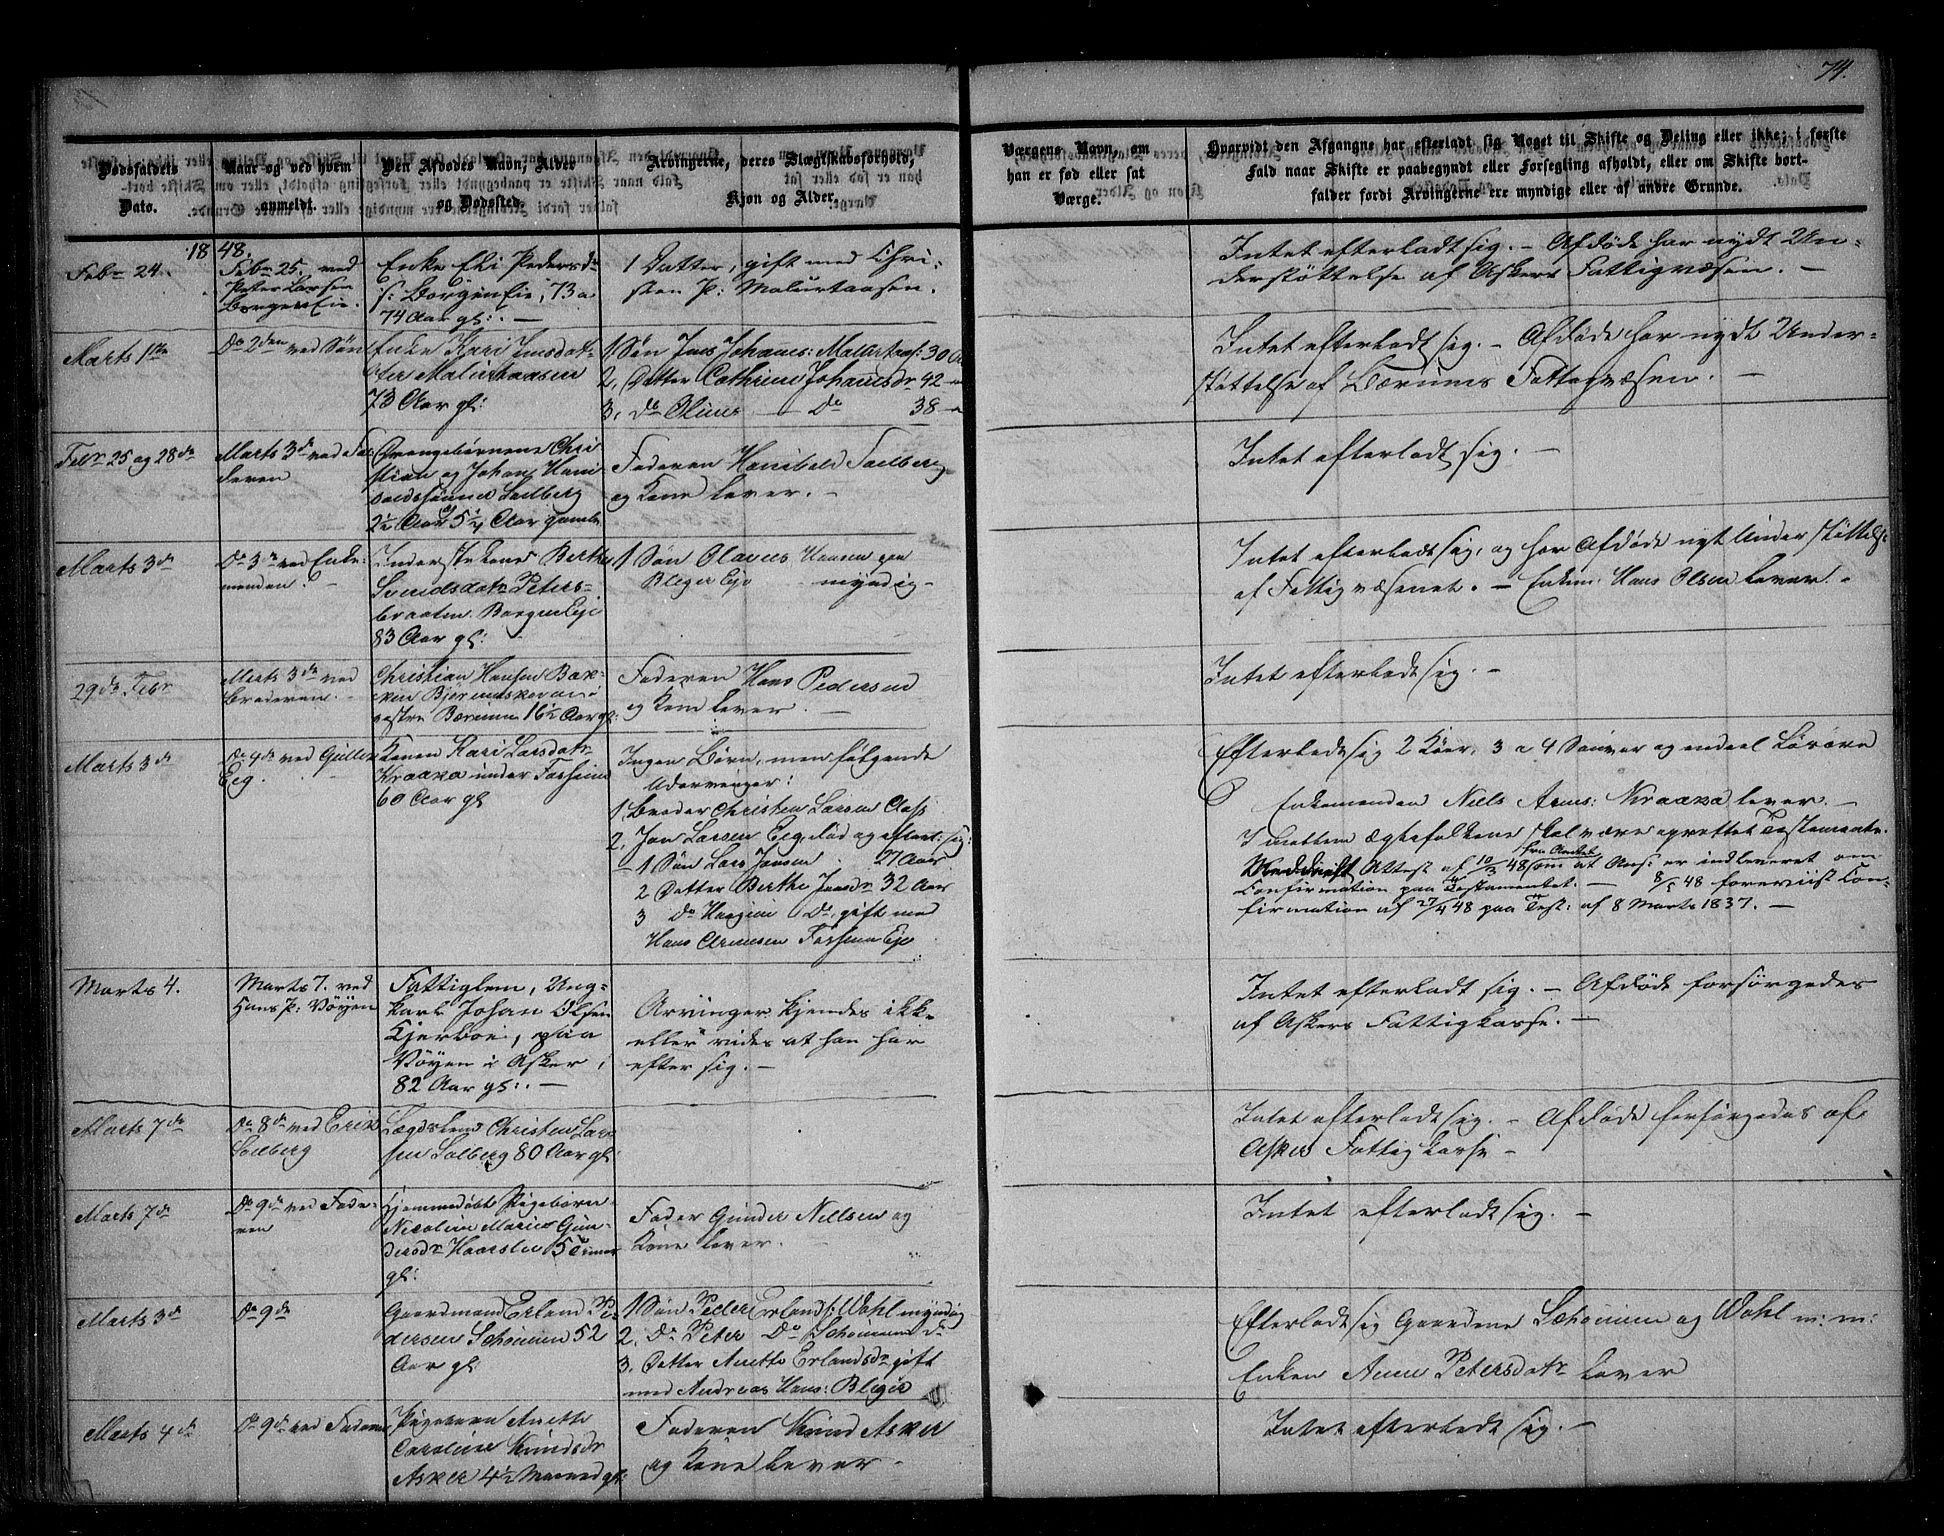 74.
Dødsfaldets
Dato.
Naar og ved hvem
anmeldt.
Den Afdødes Navn, Alder
og Dødssted.
Arvingerne, deres Slægtskabsforhold,
Kjøn og Alder.
Værgens Navn, om
han er født eller sat
Værge.
Hvorvidt den Afgangne har efterladt sig Noget til Skifte og Deling eller ikke; i første
Fald naar Skifte er paabegyndt eller Forsegling afholdt, eller om Skifte bort-
falder fordi Arvingerne ere myndige eller af andre Grunde.
1848.
Febr 24.
Febr 25. ved
Peter Larsen
Borgen Eie.
Enke Eli Pedersdr
Borgen Eie, 73 a
74 Aar gl: . —
1 Datter, gift med Chri-
sten P: Malurtaasen.
Intet efterladt sig. — Afdøde har nydt Un-
derstøttelse af Askers Fattigvæsen. —
Marts 1ste
Do 2den ved Søn
Enke Kari Jensdat-
ter Malurtaasen
73 Aar gl:
1. Søn Jens Johannes: Malurtaas: 30 A
2. Datter Cathrine Johannesdr 42 —
3. Do Oline — Do 38 —
Intet efterladt sig. — Afdøde har nydt Under-
støttelse af Bærums Fattigvæsen. —
Febr 25 og 28de
Marts 3de ved Fa-
deren
Drengebørnene Chri
stian og Johan Hani
baldssønner Solberg
2½ Aar og 5¼ Aar gamle
Faderen Hanibald Solberg
og Kone lever. —
Intet efterladt sig. —
Marts 3de
Do 3de ved Enke-
manden.
Inderstekone Berthe
Svendsdatr Peters-
braaten Borgen Eje
83 Aar gl:
1 Søn Olaves Hansen paa
Bleger Eje — myndig —
Intet efterladt sig, og har Afdøde nydt Understøttelse
af Fattigvæsenet. — Enkem. Hans Olsen lever. —
29de Febr
Marts 3de ved
Broderen. —
Christian Hansen Bak-
ken Bjerumskoven i
vestre Bærum 16½ Aar gl:
Faderen Hans Pedersen
og Kone lever. —
Intet efterladt sig. —
Marts 3de
Do 4de ved Gullik
Eeg.
Konen Kari Larsdatr
Kraaka under Tossum
60 Aar gl:
Ingen Børn, men følgende
Udarvinger:
1. Broder Christen Larsen Aas
2. Jon Larsen Eeg, død og efterl: sig:
1 Søn Lars Jonsen 27 Aar
2 Datter Berthe Jonsdr 32 Aar
3 Do Do, gift med
Hans Arnesen Tossum Eje
Efterladt sig 2 Kiør, 3 a 4 Sauer og endeel Løsøre
Enkemanden Niels Arnes: Kraaka lever. —
Imellem Ægtefolkene skal være oprettet Testamente.
fra Amtet
Attest af 10/3 48 om at Ans: er indleveret om
Confirmation paa Testamentet. — 8/5 48 foreviist Con-
firmation af 27/4 48 paa Test: af 8 Marts 1837. —
Marts 4.
Marts 7. ved
Hans P: Vøyen
Fattiglem, Ung-
karl Johan Olsen
Kjerboe, paa
Vøyen i Asker,
82 Aar gl: . —
Arvinger kjendes ikke
eller vides at han har
efter sig. —
Intet efterladt sig. — Afdøde forsørgedes
af Askers Fattigkasse. —
Marts 7de
Do 8de ved Erik
Solberg
Lægdslem Christen Lar
sen Solberg 80 Aar gl:
Intet efterladt sig. — Afdøde forsørgedes af
Asker Fattigkasse —
Marts 7de
Do 9de ved Fade-
ren
Hjemmedøbt Pigebarn
Nicoline Marie Gun-
dersdr 5 Timer
gl:
Fader Gunder Nielsen og
Kone lever.
Intet efterladt sig. —
Marts 3de
Do 9de
Gaardmand Erland Pe-
dersen Schouman 52
Aar gl:
1 Søn Peder Erlands: Wahl myndig
2. Do Peter Do Schouman do
3. Datter Anette Erlandsdr gift
med Andreas Hans: Bleger
Efterladt sig Gaardene Schoumen og Wahl m: m:
Enken Anne Petersdatr lever
Marts 4de
Do 9de ved Faderen
Pigebarn Anette
Caroline Knudsdr
Asker 4½ Maaned gl:
Faderen Knud Asker
og Kone lever —
Intet efterladt sig. —